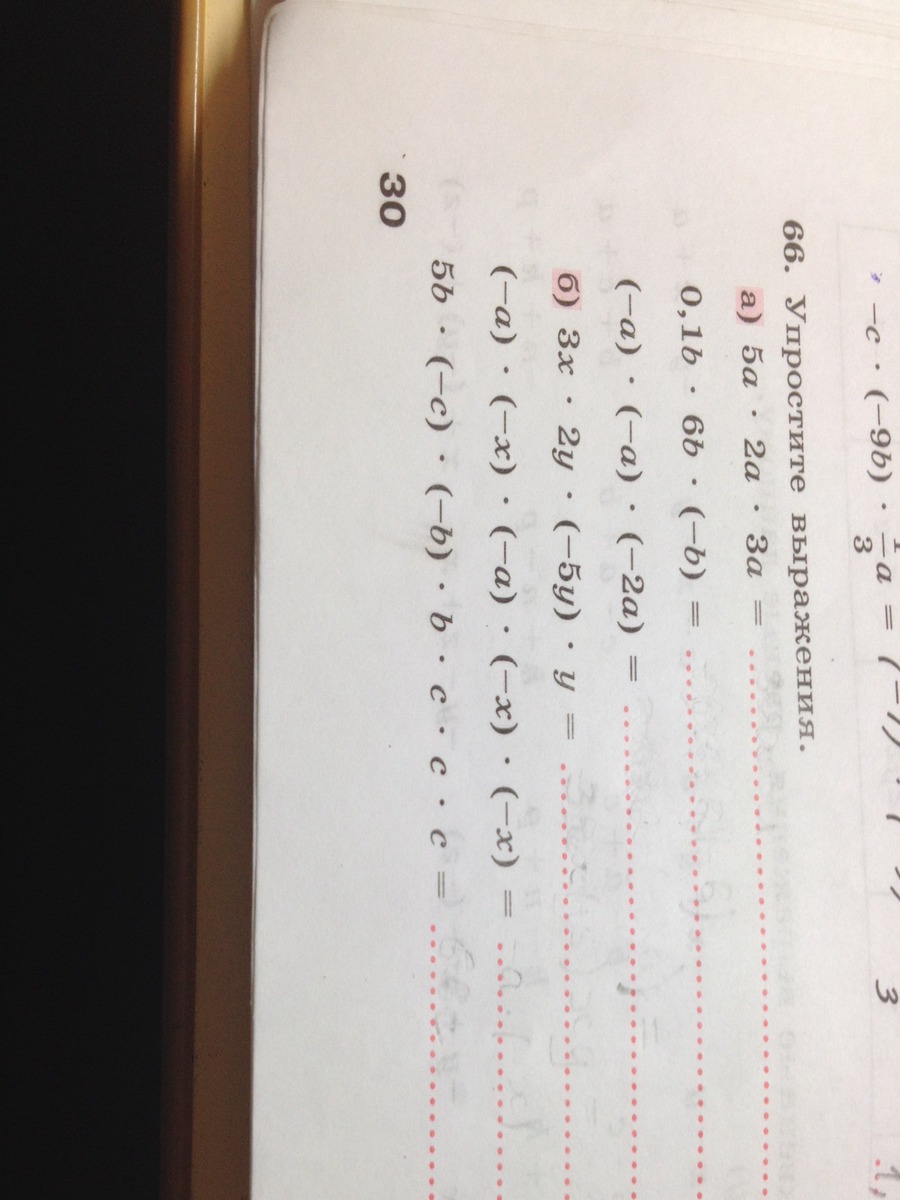 −c · (−9b) · 1/3 a = (−1) ·
3
66. Упростите выражения.
а) 5a · 2a · 3a =
0,1b · 6b · (−b) =
(−a) · (−a) · (−2a) =
б) 3x · 2y · (−5y) · y =
(−a) · (−x) · (−a) · (−x) · (−x) =
5b · (−c) · (−b) · b · c · c · c =
30